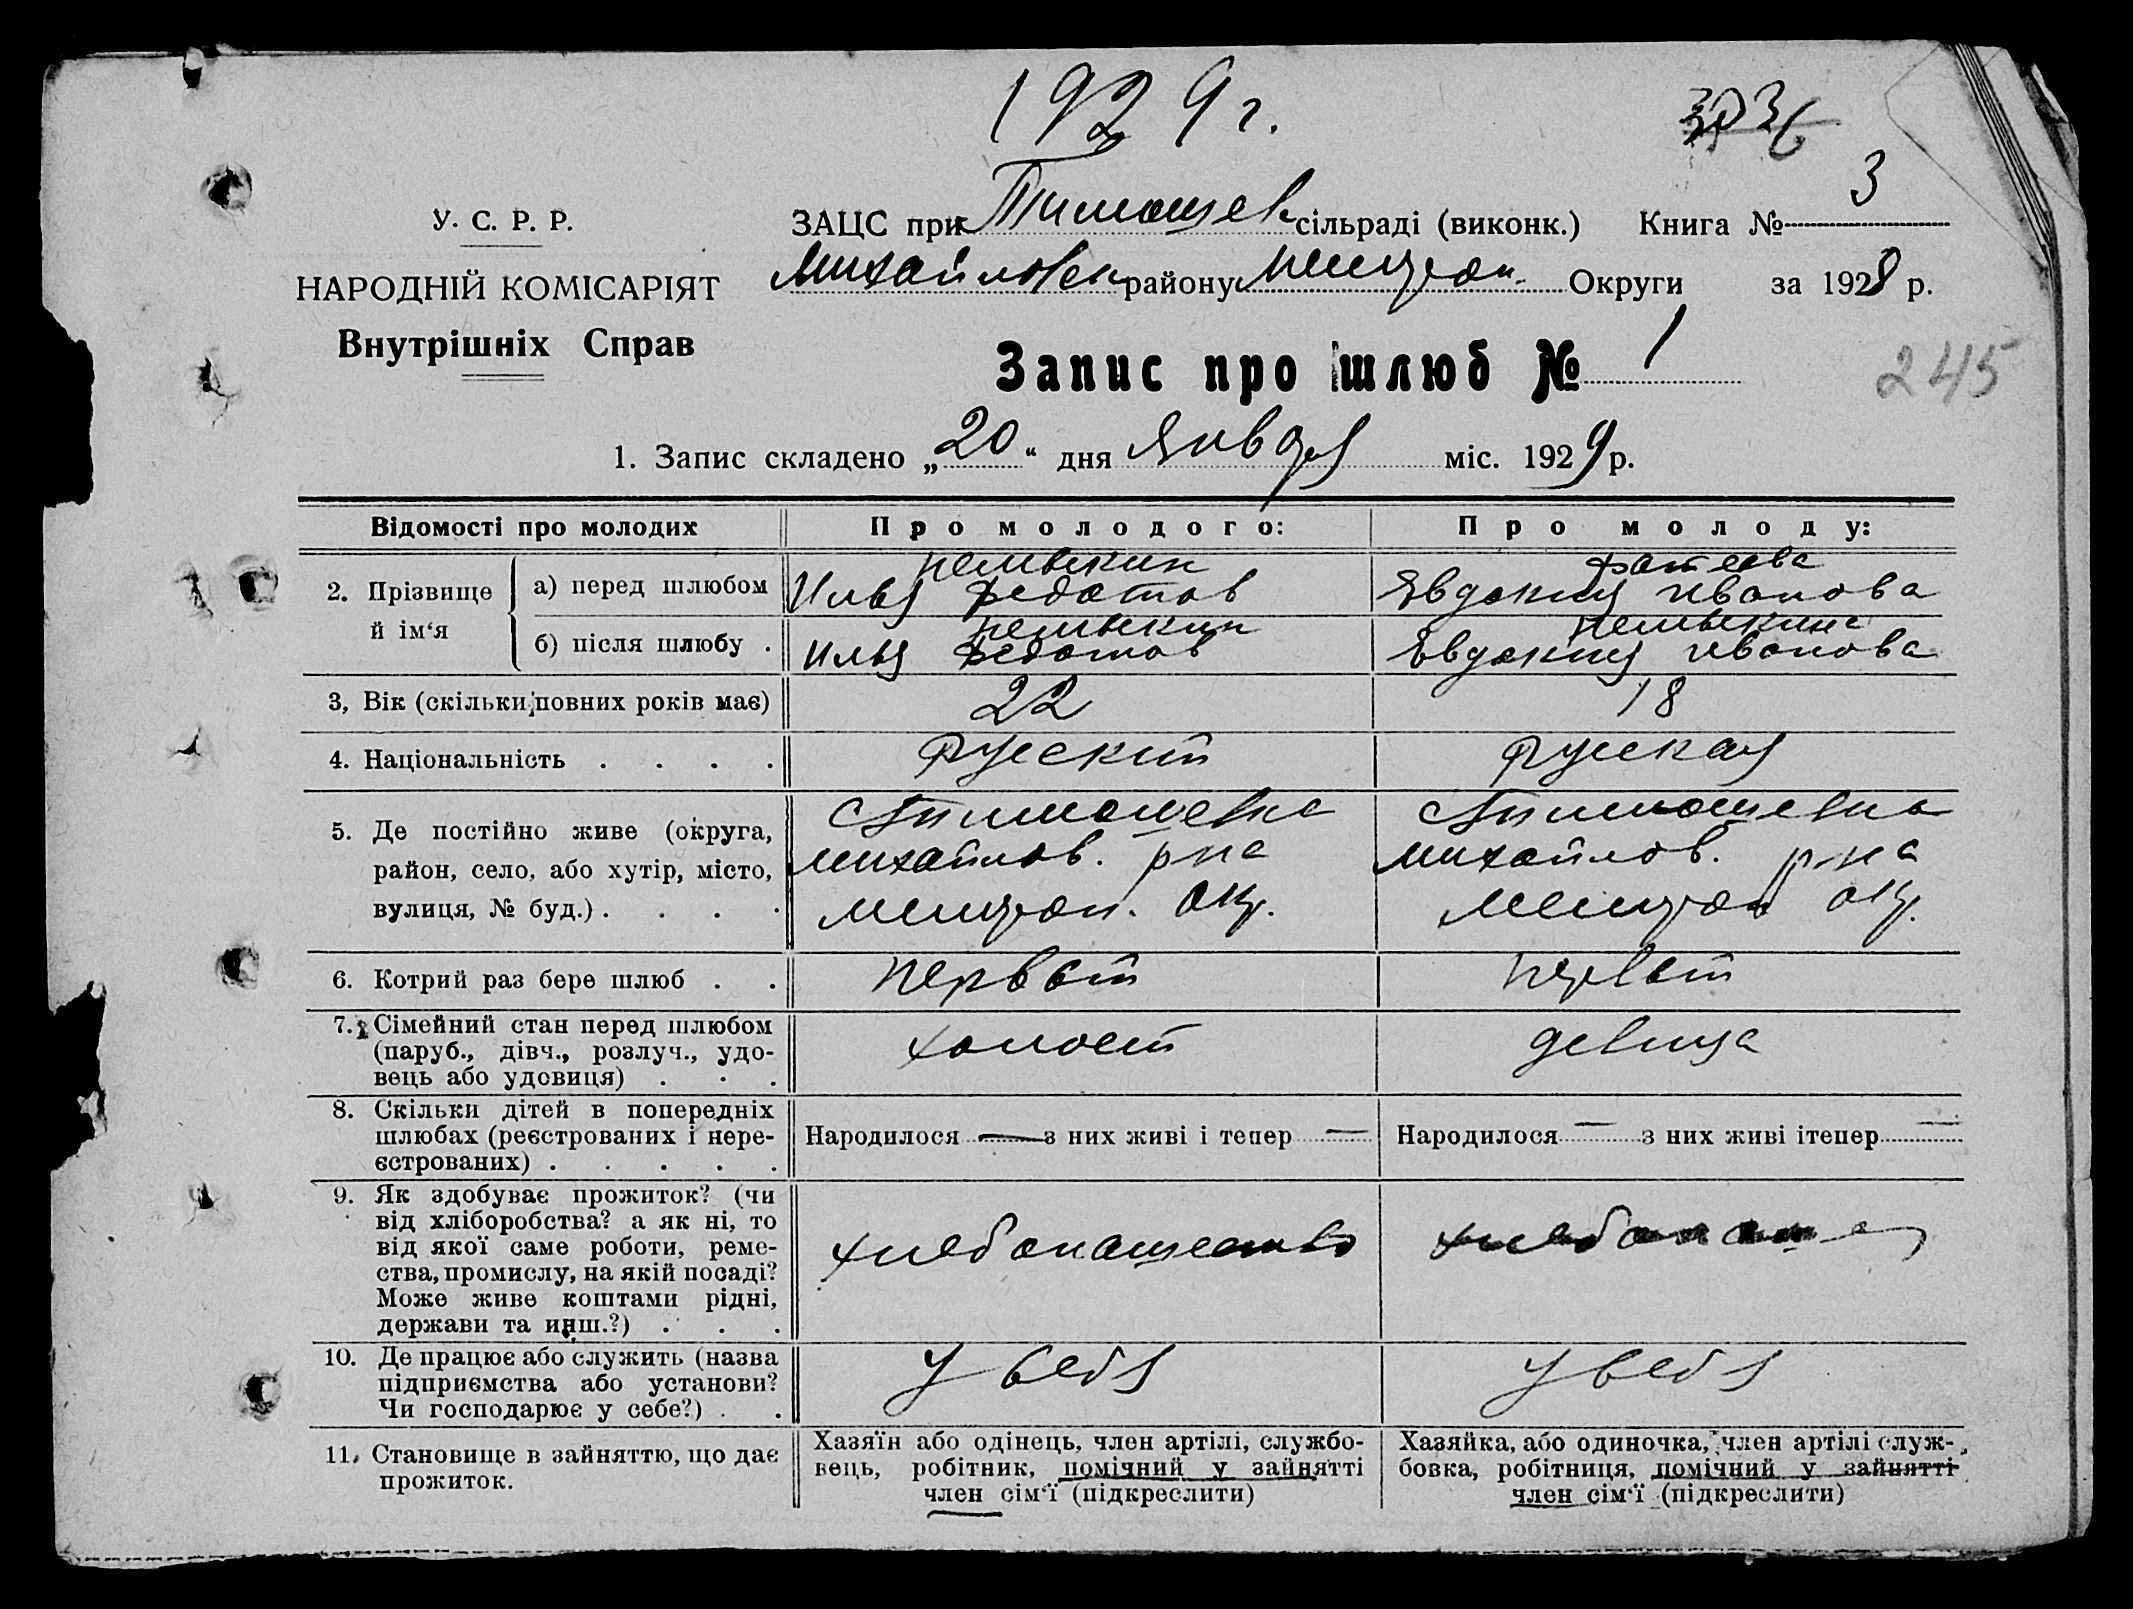 1929 г.
3
У. С. Р. Р.
ЗАЦС при Тимошев сільраді (виконк.) Книга №
НАРОДНІЙ КОМІСАРІЯТ
Михайловск району Округи за 1928 р.
Внутрішніх Справ
Запис про шлюб № 1
245
1. Запис складено „20“ дня Января міс. 1929 р.
Відомості про молодих Про молодого: Про молоду:
2. Прізвище й ім‘я
а) перед шлюбом Илья Федотов Евдокия Иванова
б) після шлюбу . Илья Федотов Евдокия Иванова
3, Вік (скільки повних років має) 22 18
4. Національність . . . . Руский Руская
5. Де постійно живе (округа, С Тимошевка С Тимошевка
район, село, або хутір, місто, Михайлов. р-на Михайлов. р-на
вулиця, № буд.) . . . . окр. окр.
6. Котрий раз бере шлюб . . первый первый
7. Сімейний стан перед шлюбом холост девица
(паруб., дівч., розлуч., удо-
вець або удовиця) . . .
8. Скільки дітей в попередніх
шлюбах (реєстрованих і нере- Народилося — з них живі і тепер — Народилося — з них живі ітепер —
єстрованих) . . . . .
9. Як здобуває прожиток? (чи
від хліборобства? а як ні, то
від якої саме роботи, реме- хлебопашество
ства, промислу, на якій посаді?
Може живе коштами рідні,
держави та инш.?) . . .
10. Де працює або служить (назва у себя у себя
підприємства або установи?
Чи господарює у себе?) . .
11, Становище в зайняттю, що дає прожиток.
Хазяїн або одінець, член артілі, службо-
вець, робітник, помічний у зайнятті
член сім‘ї (підкреслити)
Хазяйка, або одиночка, член артілі служ-
бовка, робітниця, помічний у зайнятті
член сім‘ї (підкреслити)